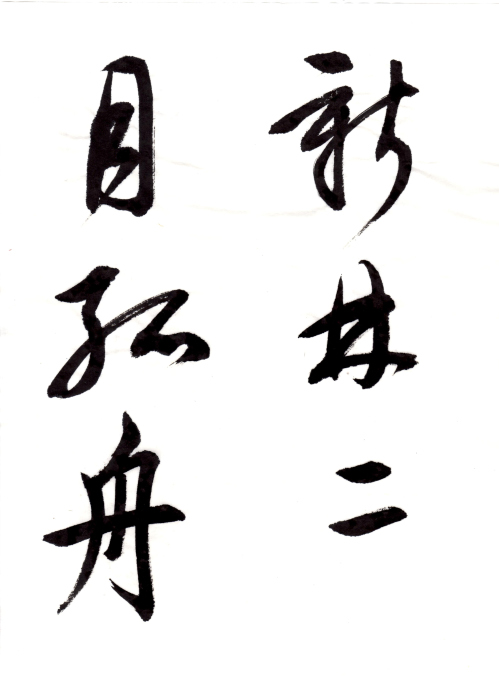 新林二
月孤舟